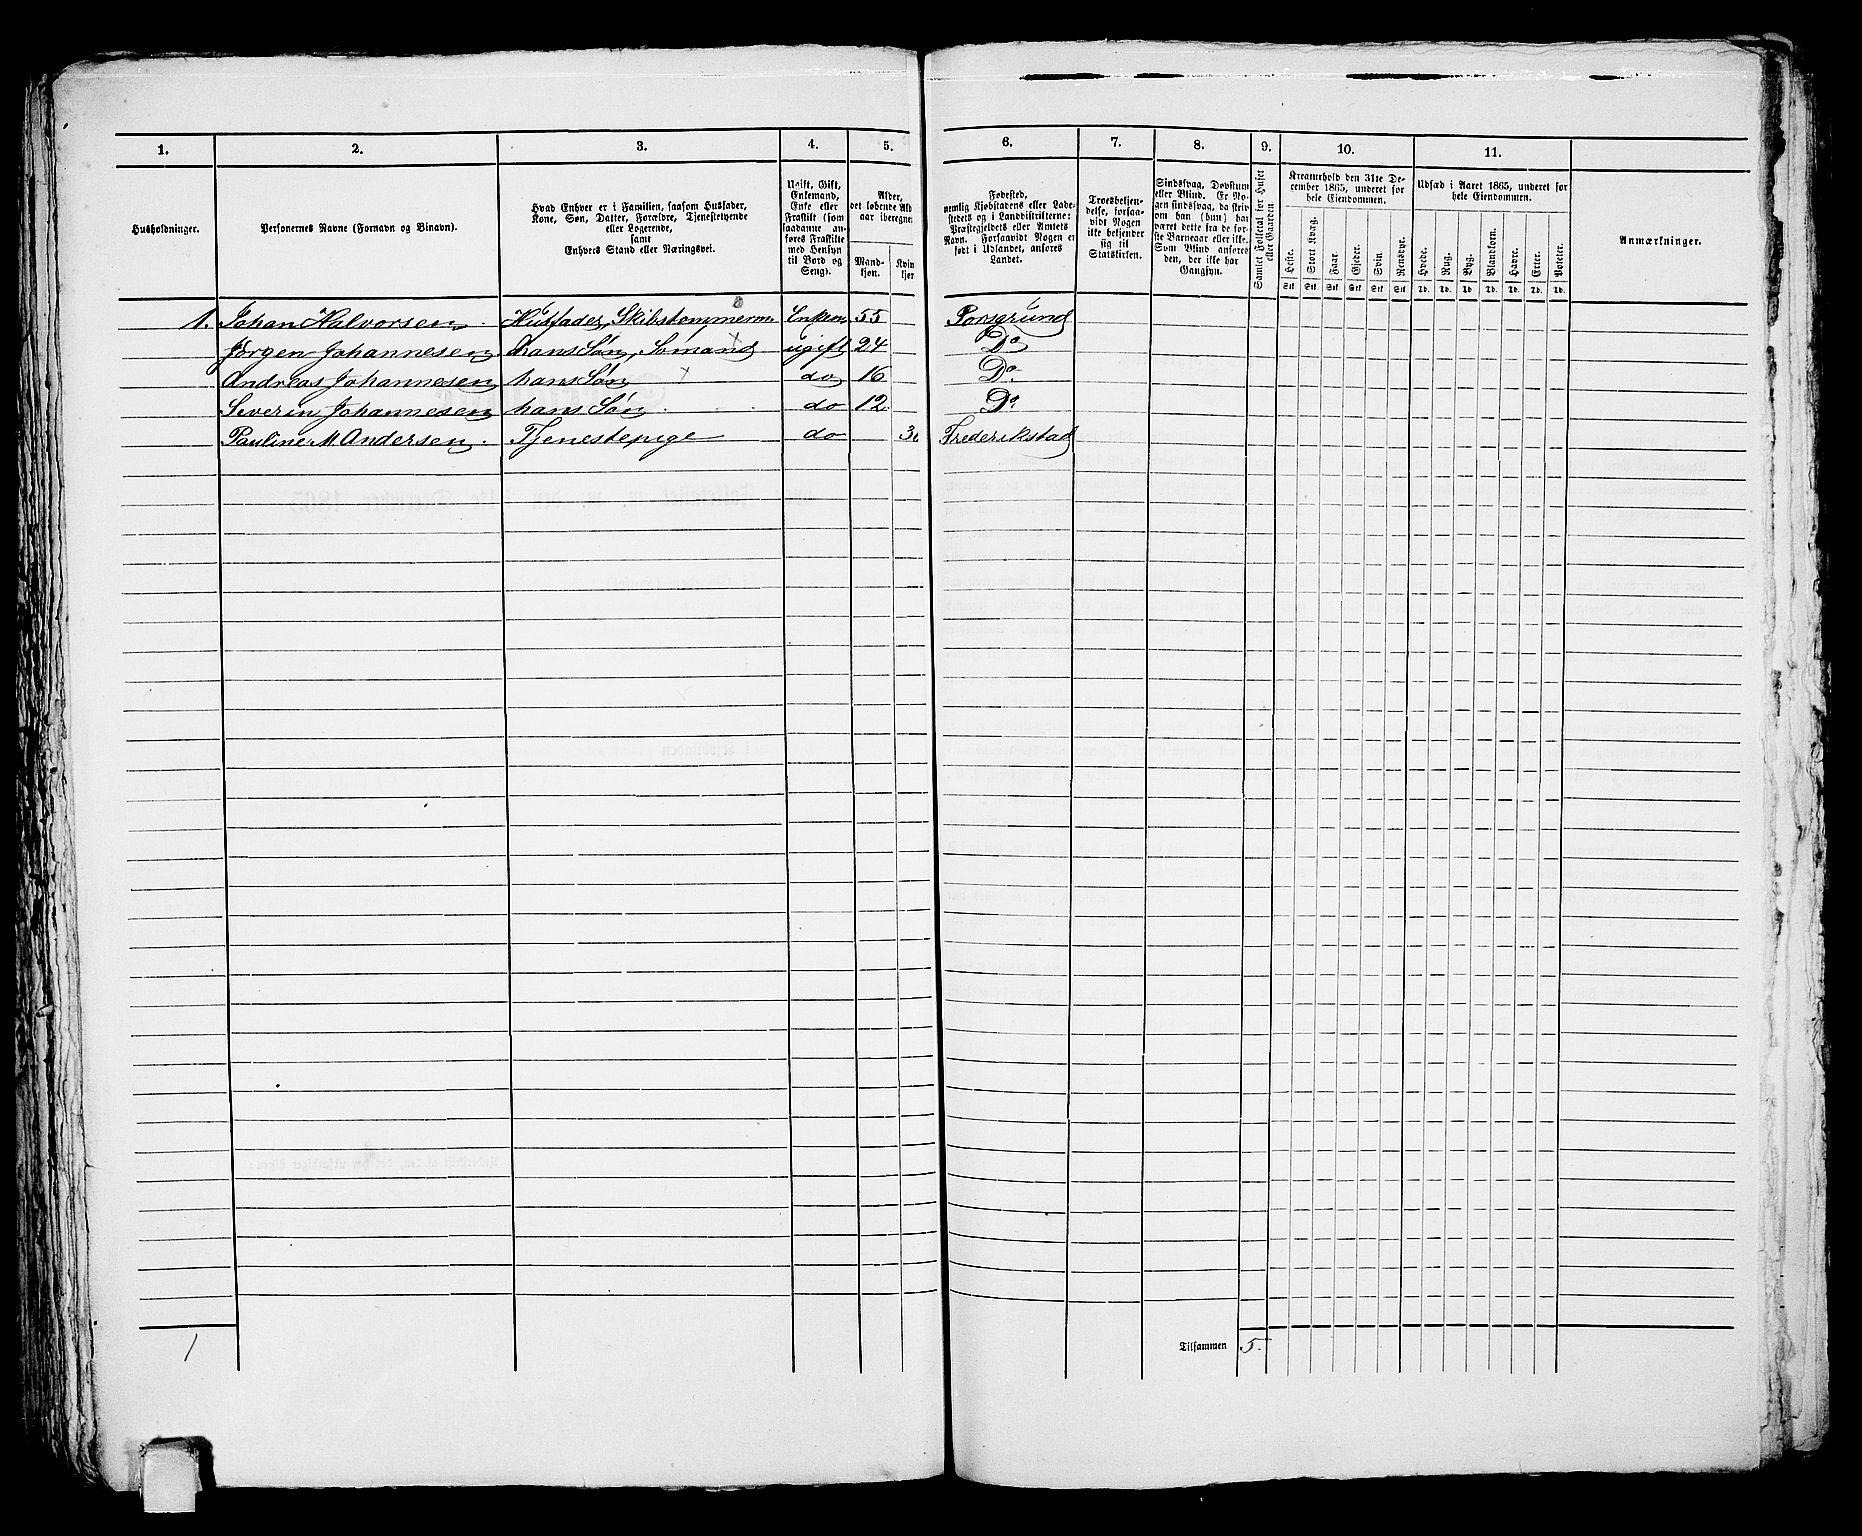 1. 2. 3. 4. 5. 6. 7. 8. 9. 10. 11.
Husholdninger.
Personernes Navne (Fornavn og Binavn).
Hvad Enhver er i Familien, saasom Husfader,
Kone, Søn, Datter, Forældre, Tjenestetyende
eller Logerende,
samt
Enhvers Stand eller Næringsvei.
Ugift, Gift,
Enkemand,
Enke eller
Fraskilt (som
saadanne an-
føres Fraskilte
med Hensyn
til Bord og
Seng).
Alder,
det løbende Al
aar iberegne
Mand-
kjøn.
Kvin
kjø
Fødested,
nemlig Kjøbstadens eller Lade-
stedets og i Landdistrikterne:
Præstegjeldets eller Amtets
Navn. Forsaavidt Nogen er
født i Udlandet, anføres
Landet.
Troesbekjen-
delse, forsaa-
vidt Nogen
ikke bekjender
sig til
Statskirken.
Sindssvag, Døvstum
eller Blind. Er No-
gen sindssvag, da skriv
om han (hun) har
været dette fra de før-
ste Barneaar eller ikke.
Som Blind anføres
den, der ikke har
Gangsyn.
Samlet Folketal for Huset
eller Gaarden
Kreaturhold den 31te De-
cember 1865, underet for
hele Eiendommen.
Heste. Stort Kvæg. Faar. Gjeder. Svin. Rensdyr.
Stk Stk Stk Stk Stk Stk
Udsæd i Aaret 1865, underet for
hele Eiendommen.
Hvede. Rug. Byg. Blandkorn. Havre. Erter. Poteter.
Td. Td. Td. Td. Td. Td. Td.
Anmærkninger.
1. Johan Halvorsen Husfader, Skibstømmerm Enkem 55 Porsgrund
Jørgen Johannesen hans Søn, Sømand ugift 24 Do
Andreas Johannesen hans Søn do 16 Do.
Severin Johannesen hans Søn. do 12 Do.
Pauline M. Andersen. Tjenestepige do 3 Frederikstad
1 Tilsammen 5.